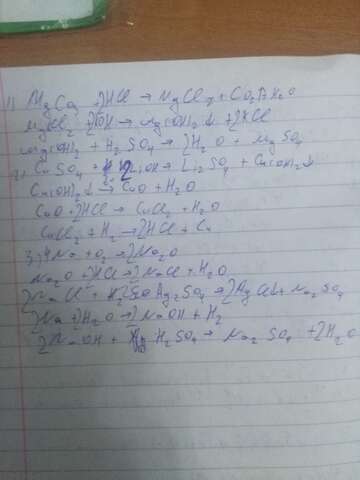 1) MgCO3 + 2HCl → MgCl2 + CO2↑ + H2O
MgCl2 + 2KOH → Mg(OH)2↓ + 2KCl
Mg(OH)2 + H2SO4 → 2H2O + MgSO4
2) CuSO4 + 2LiOH → Li2SO4 + Cu(OH)2↓
Cu(OH)2↓ → CuO + H2O
CuO + 2HCl → CuCl2 + H2O
CuCl2 + H2 → 2HCl + Cu
3) 4Na + O2 → 2Na2O
Na2O + 2HCl → 2NaCl + H2O
2NaCl + Ag2SO4 → 2AgCl↓ + Na2SO4
2Na + 2H2O → 2NaOH + H2
2NaOH + H2SO4 → Na2SO4 + 2H2O